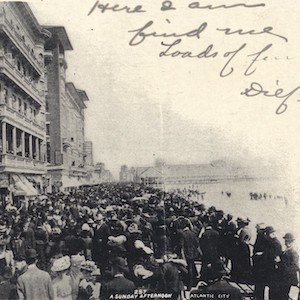 Here I am
find me
Loads of fun
257
A SUNDAY AFTERNOON
ATLANTIC CITY